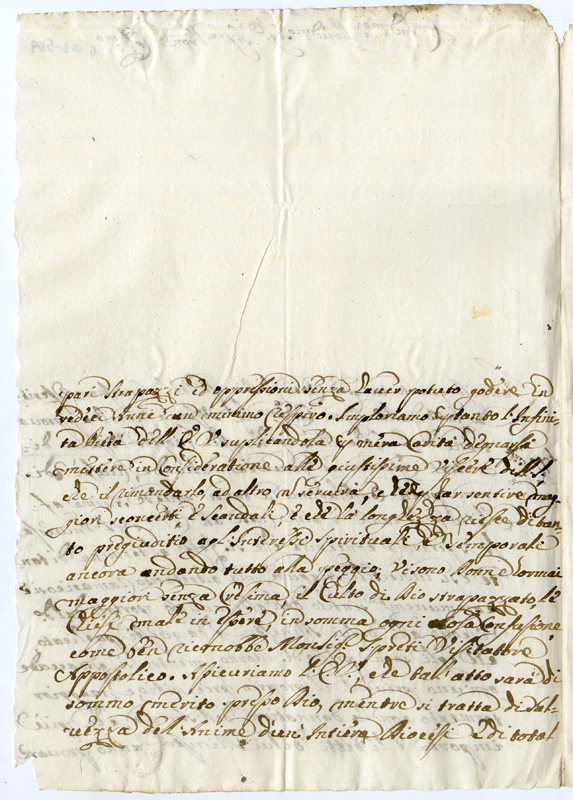 pari strapazzi ed oppressioni senza haver potuto godere in
redeci Anni un minimo respiro. Imploriamo pertanto l'Infini-
ta Bontà dell' E. V. suplicandola p mera Carità degnarsi
mettere in Consideratione alle giustissime
che il rimandarlo, ad altro n servirà, se che p far sentire mag
giori sconcerti e scandali, e che la longhezza riesce di tan
to pregiuditio agl'Interessi spirituali, e temporali
ancora andando tutto alla peggio; vi sono Donne hormai
maggiori senza Cresima il Culto di Dio strapazzato le
Chiese male in essere in somma ogni cosa Confusione
come ben riconobbe Monsig.r Spreti Visitatore
Appostolico. Assicuriamo l'E. V., che tall'atto sarà di
sommo merito presso Dio, mentre si tratta di sal-
vezza dell'Anime d'un Intiera Diocesi e di total